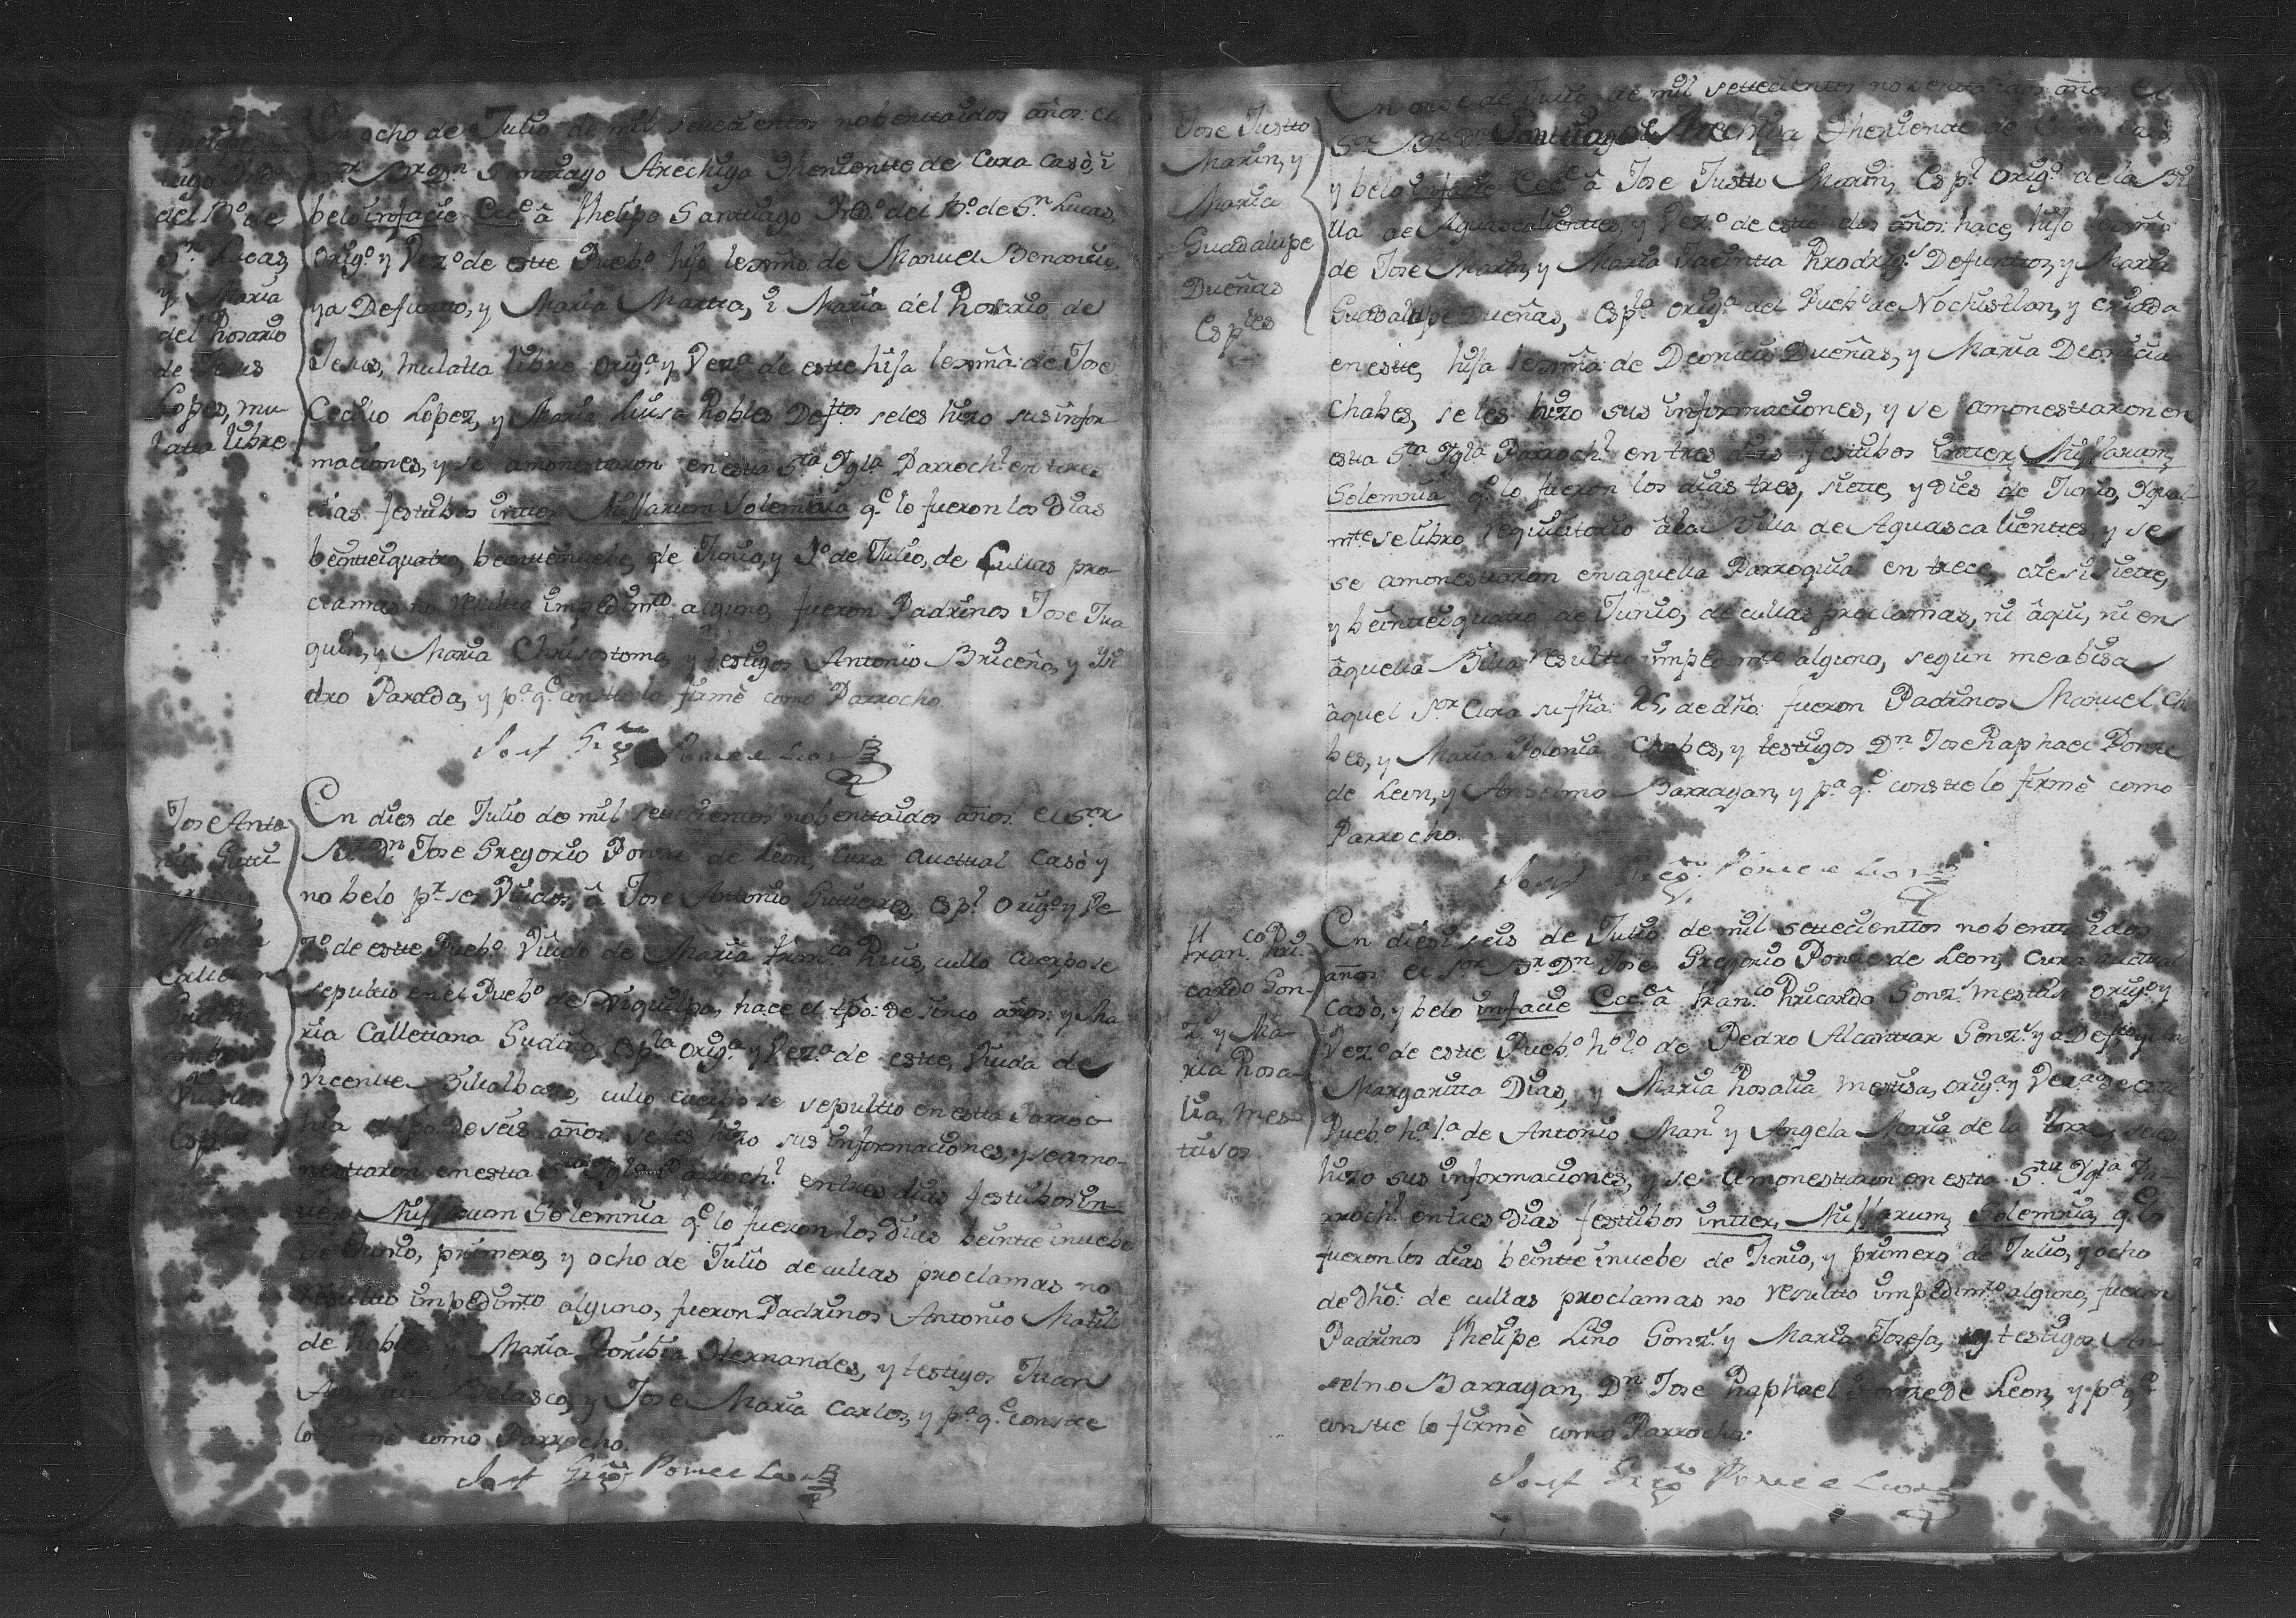 En ocho de Julio de mil setecientos nobenttaidos años: el
Sor Br Dn Santtiago Arechiga Theniente de Cura casò, i
belo infacie Ecce â Phelipe Santtiago Indo del Bo de Sn Lucas,
Origo y Vezo de estte Puebo hijo lexmo de Manuel Benancio,
ya Defunto, y Maria Martta, i Maria del Rosario de
Jesus, mulatta libre origa y Veza de estte hija lexma: de Jose
Cecilio Lopez, y Maria Luisa Robles Defttos seles hizo sus infor-
maciones, y se amonesttaron en estta Sta Ygla Parrochl en tres
dias festibos intter Missarum Solemnia qe lo fueron los Dias
beinttiquatro, beinttinuebe de Junio, y 1o de Julio, de cullas pro-
clamas no resultto impedimto alguno, fueron Padrinos Jose Jua
quin, y Maria Chrisostoma, y testigos Antonio Briceño, y Ysi
dro Parada, y pa qe constte lo firmè como Parrocho.
Josef Grego Ponce e Leon
Phelipe San-
tiago Indo
del Bo de
Sn Lucas,
y Maria
del Rosario
de Jesus
Lopes, mu-
latta libre
En dies de Julio de mil settecientos nobenttaidos años: el Sor
Br Dn Jose Gregorio Ponze de Leon, Cura Acttual casò y
no belo pr ser Viudos, â Jose Anttonio Gutierres, Espl Origo y Ve-
zo de estte Puebo Viudo de Maria Franca Ruis, cullo cuerpo se
sepultto en el Puebo de , hace el tpo: de sinco años: y Ma
ria Calletana Gudiño, Espla Origa y Veza de estte, Viuda de
Vicentte Billalbaso, cullo cuerpo se sepultto en estta Parroc-
hia el tpo. de seis años: se les hizo sus informaciones, y se amo-
nesttaron en estta Sta Ygla Parrochl en tres dias festibos in-
tter Missarum Solemnia qe lo fueron los Dias beintteinuebe
de Junio, primero, y ocho de Julio de cullas proclamas no
resultto impedimto alguno, fueron Padrinos Antonio Matil
de Robles, y Maria Toribia Hernandes, y testigos Juan
Velasco, y Jose Maria Carlos, y pa qe constte
lo firmè como Parrocho.
Josef Grego Ponce e Leon
Jose Anto
nio Gutti-
Maria
Calletana
Gudiño
Viudos
Esples
En onse de Julio de mil settecientos nobentta idos años: el
Sor Br Dn Santtiago Arechiga Theniente de Cura casò
y belo infacie Ecce â Jose Justto Marin, Espl Origo de la Bi
lla de Aguascalienttes, y Vezo de estte dos años: hace, hijo lexmo
de Jose Marin, y Maria Jacintta Rodrigz Defuntos, y Maria
Guadalupe Dueñas, Espla origa del Puebo de Nochistlan, y criada
en estte, hija lexma: de Deonicio Dueñas, y Maria Deonicia
Chabes, se les hizo sus informaciones, y se amonesttaron en
estta Sta Ygla Parrochl en tres dias festibos intter Missarum
Solemnia qe lo fueron los dias tres, siette, y Dies de Junio, Ygual
mte se libro requicitorio âla Billa de Aguascalienttes y se
se amonesttaron en aquella Parroquia en trece, diesisiette,
y beintteiquatro de Junio, de cullas proclamas, ni âqui, ni en
âquella Billa resultto impedimto alguno, segun me abisa
âquel Sor Cura su fha: 25, de dho: fueron Padrinos Manuel Cha
bes, y Maria Polonia Chabes, y testigos Dn Jose Raphael Ponze
de Leon, y Anselmo Barragan, y pa qe constte lo firmè como
Parrocho.
Josef Grego Ponce e Leon
Jose Justto
Marin, y
Maria
Guadalupe
Dueñas
Esples
En diesiseis de Julio de mil settecienttos nobentta idos
años: el Sor Br Dn Jose Gregorio Ponze de Leon, Cura Acttual
casò, y belo infacie Ecce â Franco Ricardo Gonzz mestiso Origo y
Vezo de estte Puebo ho lo de Pedro Alcanttar Gonzz ya Deftto y
Margaritta Dias, y Maria Rosalia mestisa, origa y Veza de estte
Puebo ha la de Antonio Manl y Angela Maria de la Torre, seles
hizo sus informaciones, y se amonesttaron en estta Sta Ygla Pa-
rrochl en tres Dias festibos intter Missarum Solemnia, qe lo
fueron los dias beintteinuebe de Junio, y primero de Julio, y ocho
de Dho: de cullas proclamas no resultto impedimto alguno, fueron
Padrinos Phelipe Lino Gonzz y Maria Josefa, y testigos An-
selmo Barragan, Dn Jose Raphael Ponze De Leon, y pa qe
constte lo firmè como Parrocho:
Josef Grego Ponce e Leon
Franco Ri-
cardo Gon-
zz y Ma-
ria Rosa-
lia, mes-
tisos